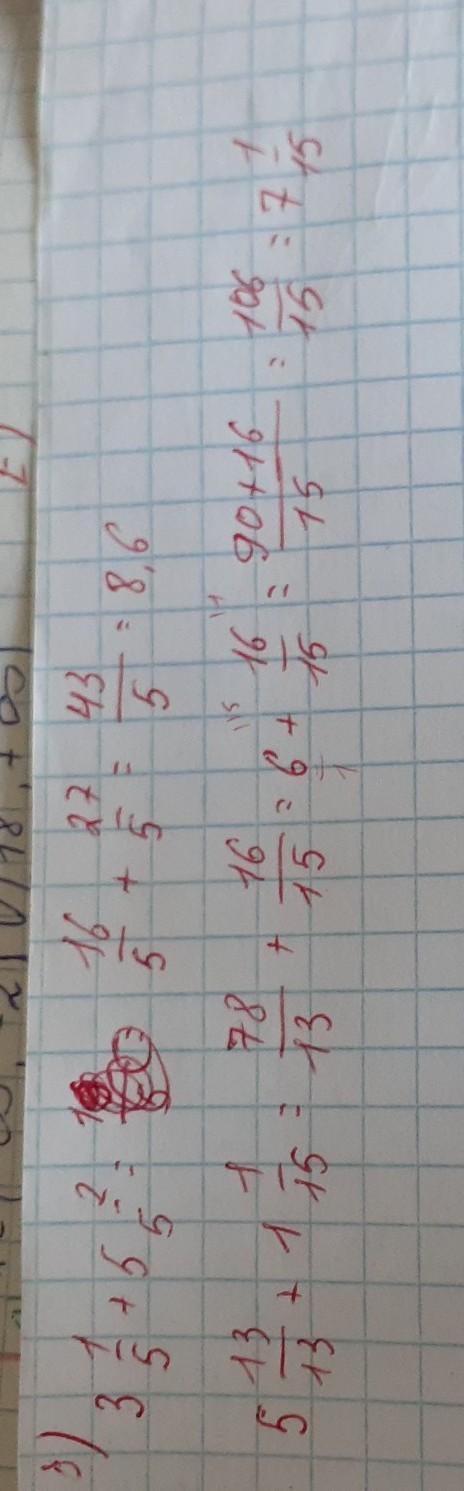 3)
3 1/5 + 5 2/5 = 16/5 + 27/5 = 43/5 = 8,6
5 13/13 + 1 1/15 = 78/13 + 16/15 = 6/1 + 16/15 = 90+16/15 = 106/15 = 7 1/15